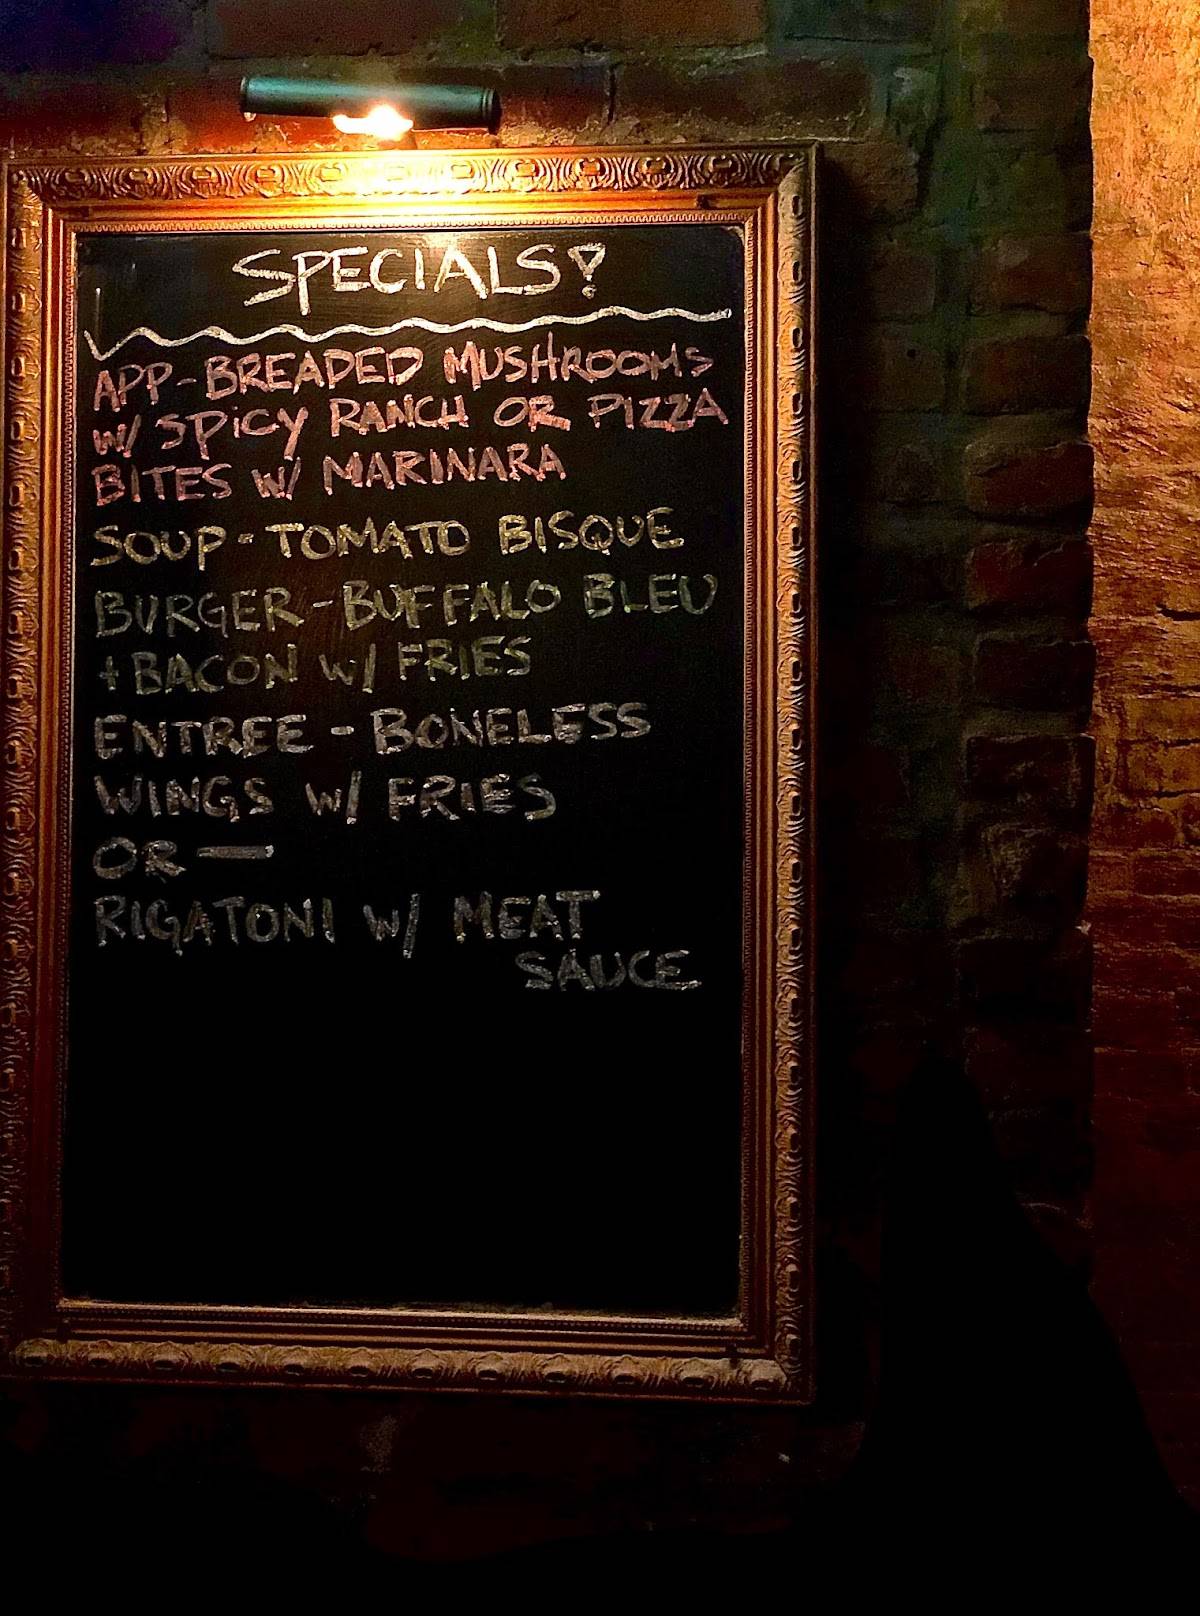 SPECIALS!
APP-BREADED MUSHROOMS
W/ SPiCY RANCH OR PIZZA
BITES W/ MARINARA
SOUP-TOMATO BISQUE
BURGER-BUFFALO BLEU
+BACON W/ FRIES
ENTREE - BONELESS
WINGS W/ FRIES
OR —
RIGATONI W/ MEAT
SAUCE